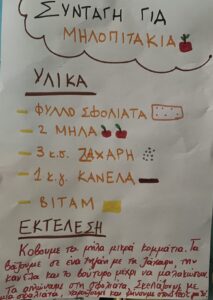 ΣΥΝΤΑΓΗ ΓΙΑ
ΜΗΛΟΠΙΤΑΚΙΑ
ΥΛΙΚΑ
- ΦΥΛΛΟ ΣΦΟΛΙΑΤΑ
- 2 ΜΗΛΑ
- 3 κ.σ. ΖΑΧΑΡΗ
- 1 κ.γ. ΚΑΝΕΛΑ
- ΒΙΤΑΜ
ΕΚΤΕΛΕΣΗ
Κόβουμε τα μήλα μικρά κομμάτια. Τα
βάζουμε σε ένα τηγάνι με τη ζάχαρη, την
κανέλα και το βούτυρο μέχρι να μαλακώσουν.
Τα απλώνουμε στη σφολιάτα. Σκεπάζουμε με
μια σφολιάτα,